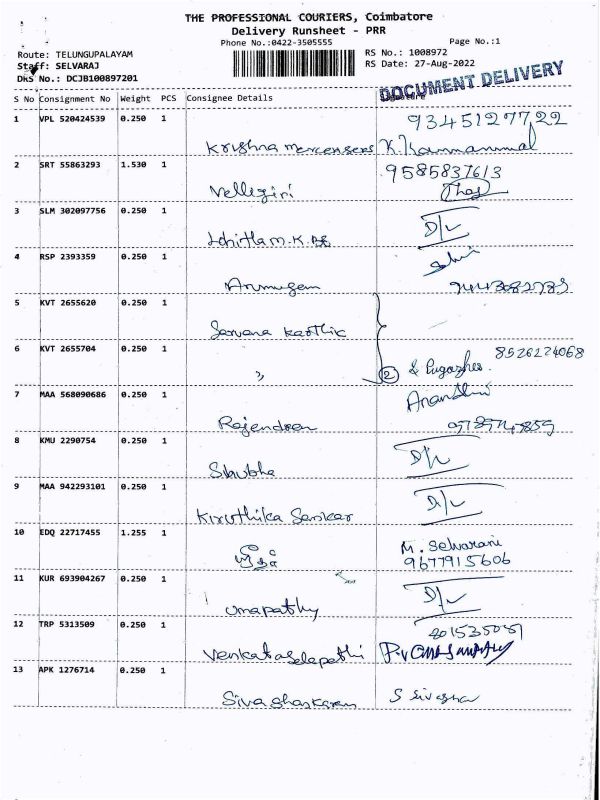 THE PROFESSIONAL COURIERS, Coimbatore
Delivery Runsheet - PRR
Phone No.:0422-3505555 Page No.:1
Route: TELUNGUPALAYAM RS No.: 1008972
Staff: SELVARAJ RS Date: 27-Aug-2022
DRS No.: DCJB100897201
DOCUMENT DELIVERY
S No Consignment No Weight PCS Consignee Details
1 VPL 520424539 0.250 1 9345127722
Krishna K. Kannammal
2 SRT 55863293 1.530 1 9585837613
Vellegiri
3 SLM 302097756 0.250 1 D/L
4 RSP 2393359 0.250 1
Arumugam
5 KVT 2655620 0.250 1
Sarvana Karthic
6 KVT 2655704 0.250 1 8526224068
" 2 Pugazhes.
7 MAA 568090686 0.250 1
Rajendran
8 KMU 2290754 0.250 1 D/L
Sibubha
9 MAA 942293101 0.250 1 D/L
Kiruthika Sankar
10 EDQ 22717455 1.255 1 M. Selvarani
9677915606
11 KUR 693904267 0.250 1 D/L
Umapathy
12 TRP 5313509 0.250 1
Venkatasalapathi
13 APK 1276714 0.250 1
Sivabhaskaran